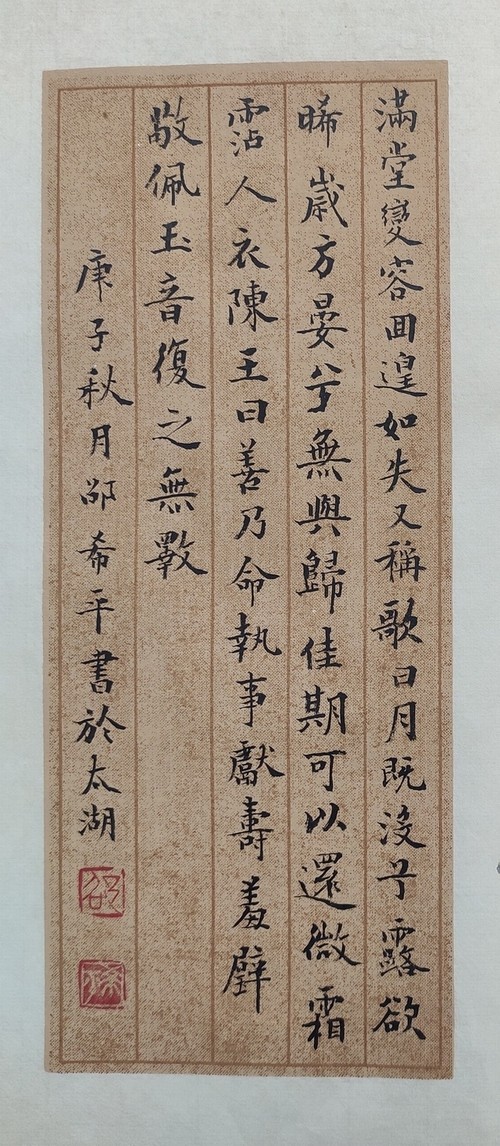 滿堂變容回遑如失又稱歌曰月既沒兮露欲
晞歲方晏兮無與歸佳期可以還微霜
霑人衣陳王曰善乃命執事獻壽羞璧
敬佩玉音復之無斁
庚子秋月邵希平書於太湖